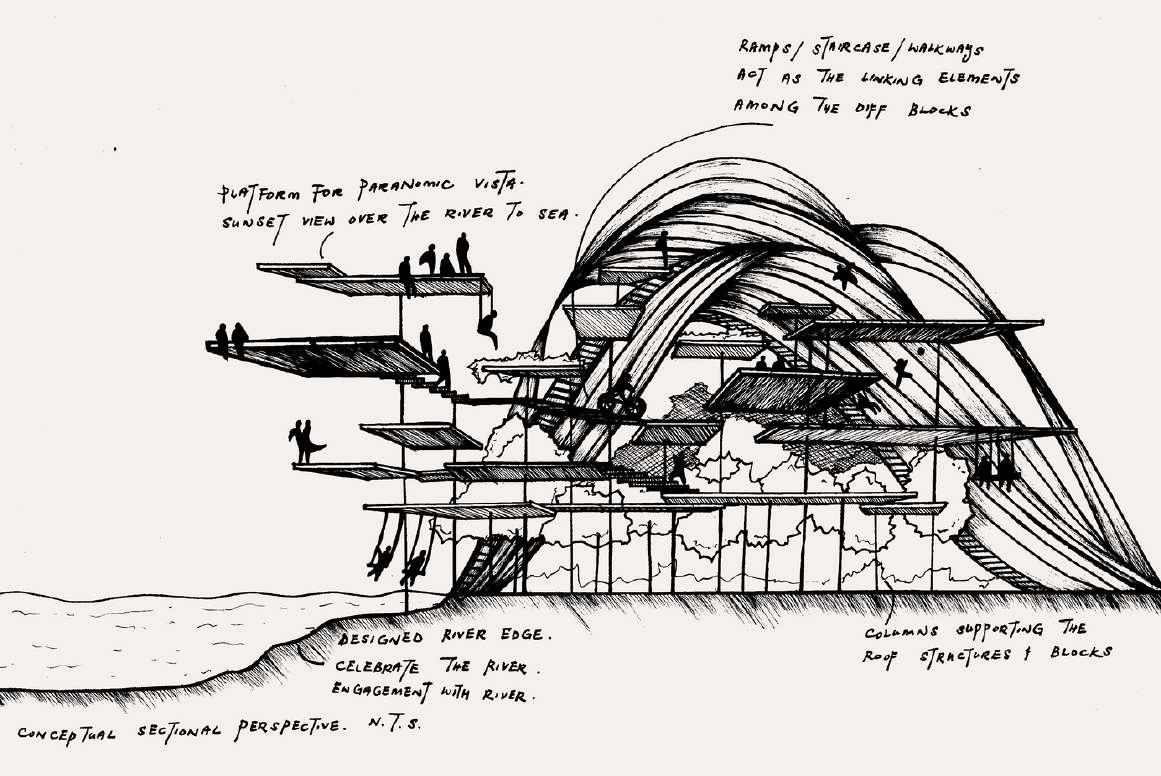 RAMPS/ STAIRCASE/WALKWAYS
ACT AS THE LINKING ELEMENTS
AMONG THE DIFF BLOCKS
PLATFORM FOR PARANOMIC VISTA.
SUNSET VIEW OVER THE RIVER TO SEA.
DESIGNED RIVER EDGE.
CELEBRATE THE RIVER.
ENGAGEMENT WITH RIVER.
COLUMNS SUPPORTING THE
ROOF STRACTURES & BLOCKS
CONCEPTUAL SECTIONAL PERSPECTIVE. N.T.S.